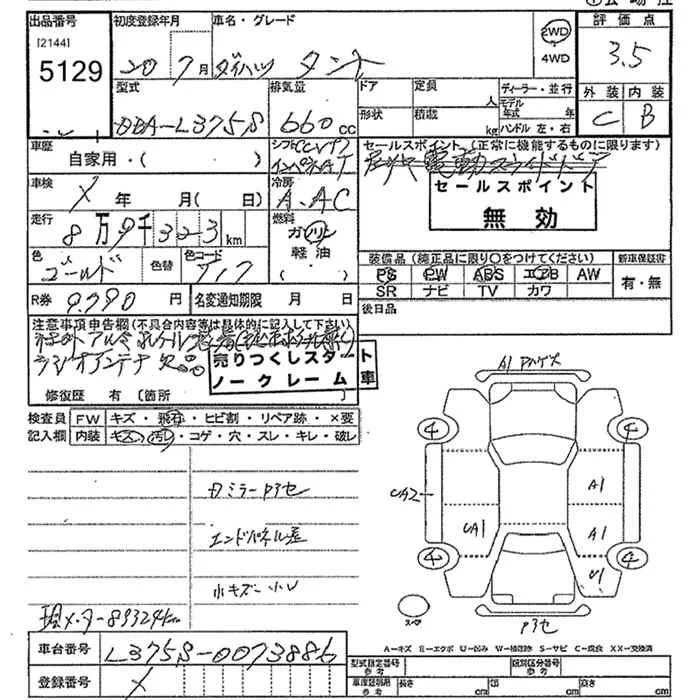 出品番号
[2144]
5129
初度登録年月
20年7月
車名・グレード
ダイハツ タント
2WD
4WD
評価点
3.5
型式
DBA-L375S
排気量
660 cc
ドア
定員
人
ディーラー・並行
形状
積載
kg
モデル年式 年
ハンドル 左・右
外装 内装
C B
車歴
自家用・( )
シフト
インパネAT
セールスポイント(正常に機能するものに限ります)
電動スライドドア
セールスポイント
無効
車検
X 年 月( 日)
冷房
A.AC
走行
8万9千323km
燃料
ガソリン
軽油
( )
色
ゴールド
色替
色コード
装備品(純正品に限り〇をつけてください)
新車保証書
PS PW ABS エアB AW
SR ナビ TV カワ
有・無
R券
9.790円
名変通知期限 月 日
後日品
注意事項申告欄(不具合内容等は具体的に記入して下さい)
ラジオアンテナ欠品
売りつくしスタート
ノークレーム車
修復歴 有 〔箇所 〕
検査員
記入欄
FW キズ・飛石・ヒビ割・リペア跡・×要
内装 キズ・汚れ・コゲ・穴・スレ・キレ・破レ
A1 PハゲX
4
4
UA2
A1
UA1
A1
4
4
U1
スペア
Pヨセ
ミラーPヨセ
エンドパネル歪
小キズ・小U
現メーター89324km
A=キズ E=エクボ U=凹み W=補修跡 S=サビ C=腐食 XX=交換済
車台番号
L375S-0073886
登録番号
X
型式指定番号
参考
類別区分番号
参考
車庫証明用
参考
長さ cm
幅 cm
高さ cm